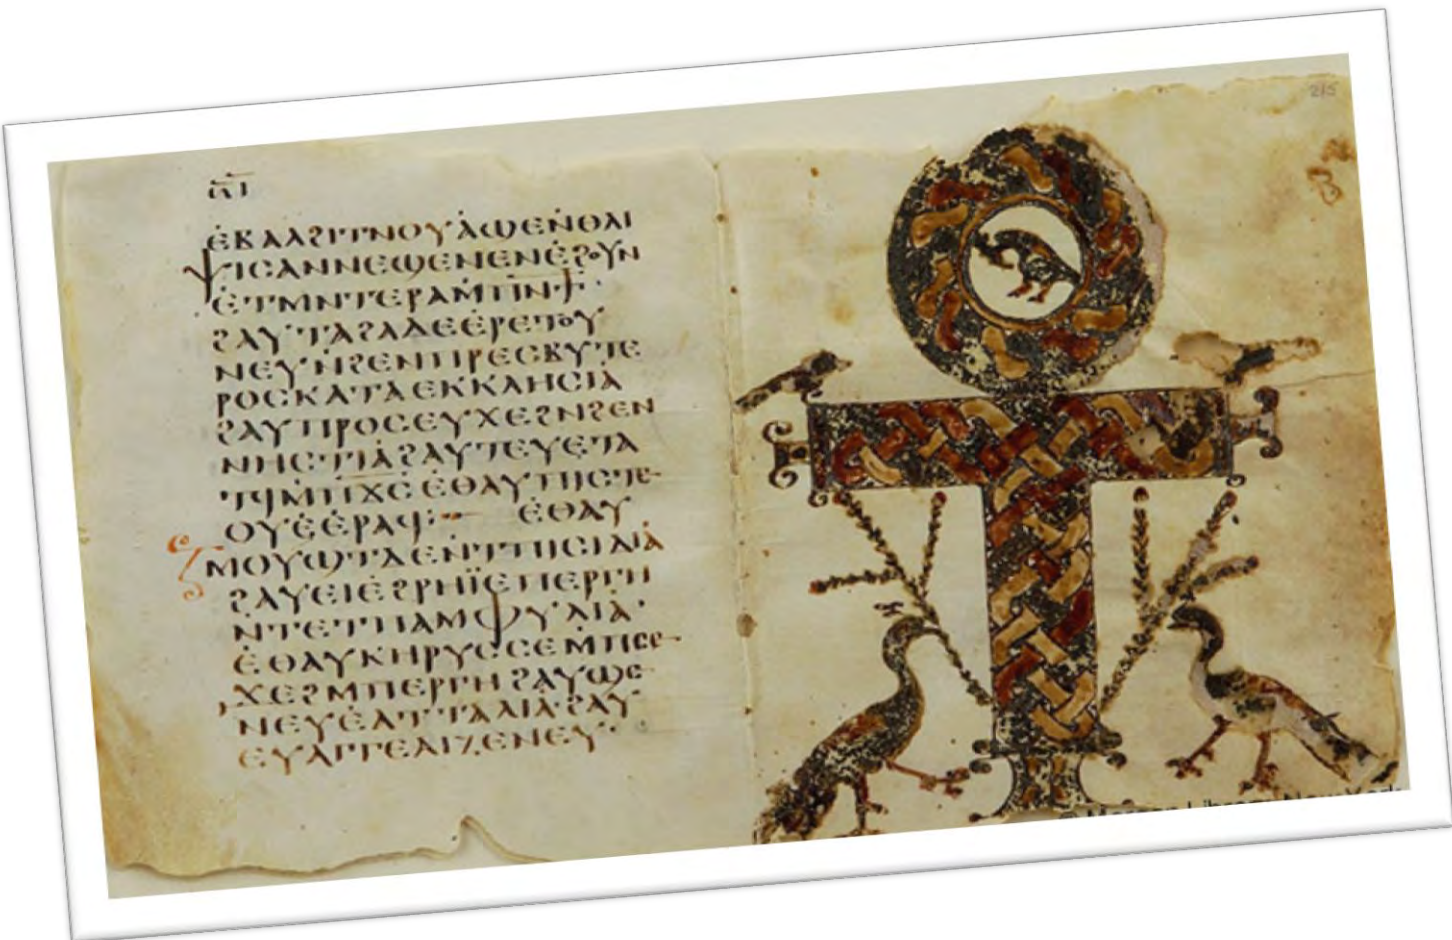 ⲥ̅ⲓ̅
ⲉ̇ⲃⲁⲗϩⲓⲧⲛⲟⲩⲁ̇ϣⲉⲛⲑⲗⲓ
ⲯⲓⲥⲁⲛⲛⲉϣⲉⲛⲉⲛⲉ̇ϩⲟⲩⲛ
ⲉ̇ⲧⲙⲛⲧⲉⲣⲁⲙ̇ⲡⲛϯ·
ϩⲁⲩⲧⲁϩⲁⲗⲉⲉ̇ⲣⲉⲧⲟⲩ
ⲛⲉⲩⲛ̇ϩⲉⲛⲡⲣⲉⲥⲃⲩⲧⲉ
ⲣⲟⲥⲕⲁⲧⲁⲉⲕⲕⲗⲏⲥⲓⲁ̇
ϩⲁⲩⲡⲣⲟⲥⲉⲩⲭⲉϩⲛϩⲉⲛ
ⲛⲏⲥⲧⲓⲁ̇ϩⲁⲩⲧⲉⲩⲉⲧⲁ
ⲧϥⲙ̇ⲡϫⲥ̅ⲉ̇ⲑⲁⲩⲡⲓⲥⲧⲉ
ⲟⲩⲉ̇ⲉ̇ⲣⲁϥ· ⲉ̇ⲑⲁⲩ
ⲙⲟⲩϣⲧⲁⲉⲛ̇ⲧⲡⲓⲥⲓⲇⲓⲁ̇
ϩⲁⲩⲉⲓⲉ̇ϩⲣⲏⲓ̈ⲉⲡⲉⲣⲅⲏ
ⲛⲧⲉⲧⲡⲁⲙⲫⲩⲗⲓⲁ̇·
ⲉ̇ⲑⲁⲩⲕⲏⲣⲩⲥⲥⲉⲙ̇ⲡⲥⲉ
ϫⲉϩⲙⲡⲉⲣⲅⲏϩⲁⲩϣⲉ
ⲛⲉⲩⲉ̇ⲁⲧⲧⲁⲗⲓⲁ·ϩⲁⲩ
ⲉⲩⲁⲅⲅⲉⲗⲓⲍⲉⲛⲉⲩ·
215